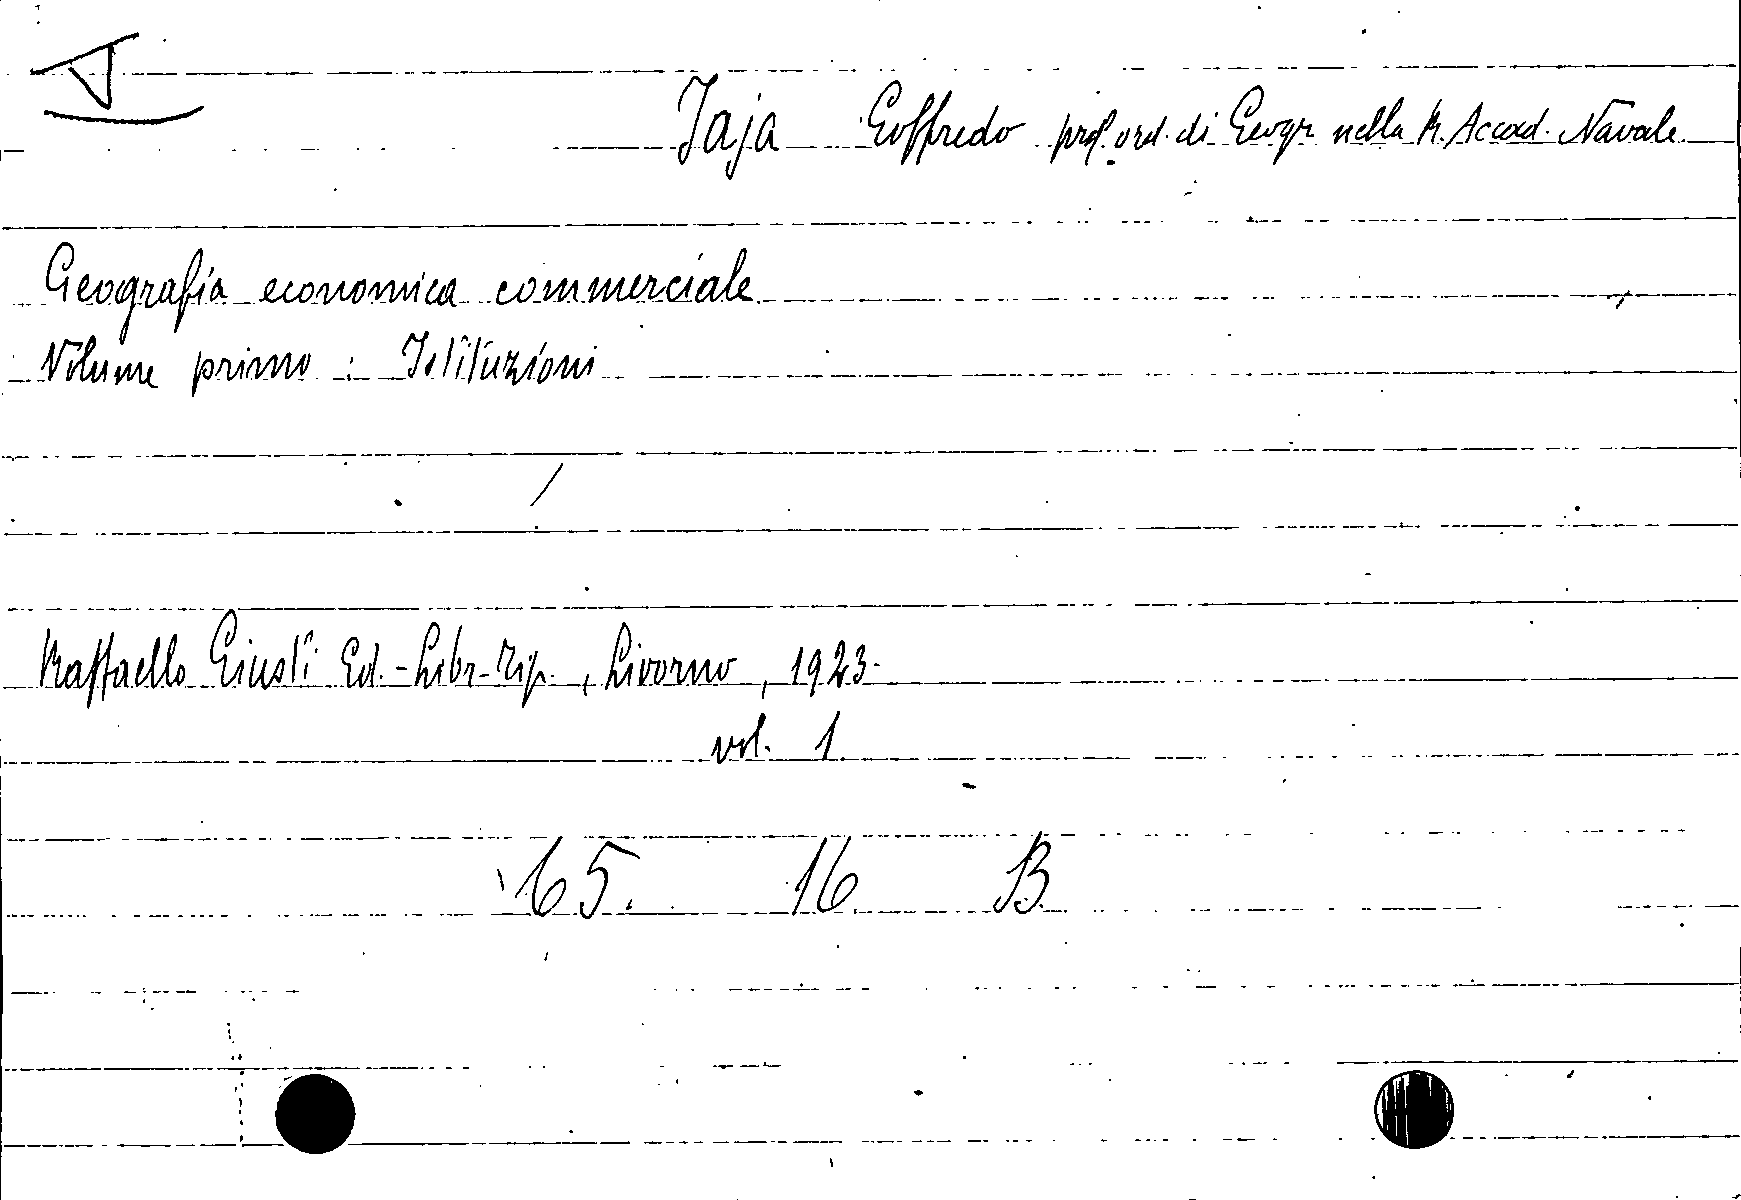 Jaja Goffredo prof. ord. di Geogr. nella R. Accad. Navale
Geografia economica commerciale
Volume primo : Istituzioni
Raffaello Giusti Ed.-Libr-Tip., Livorno, 1923.
vol. 1
65. 16 B